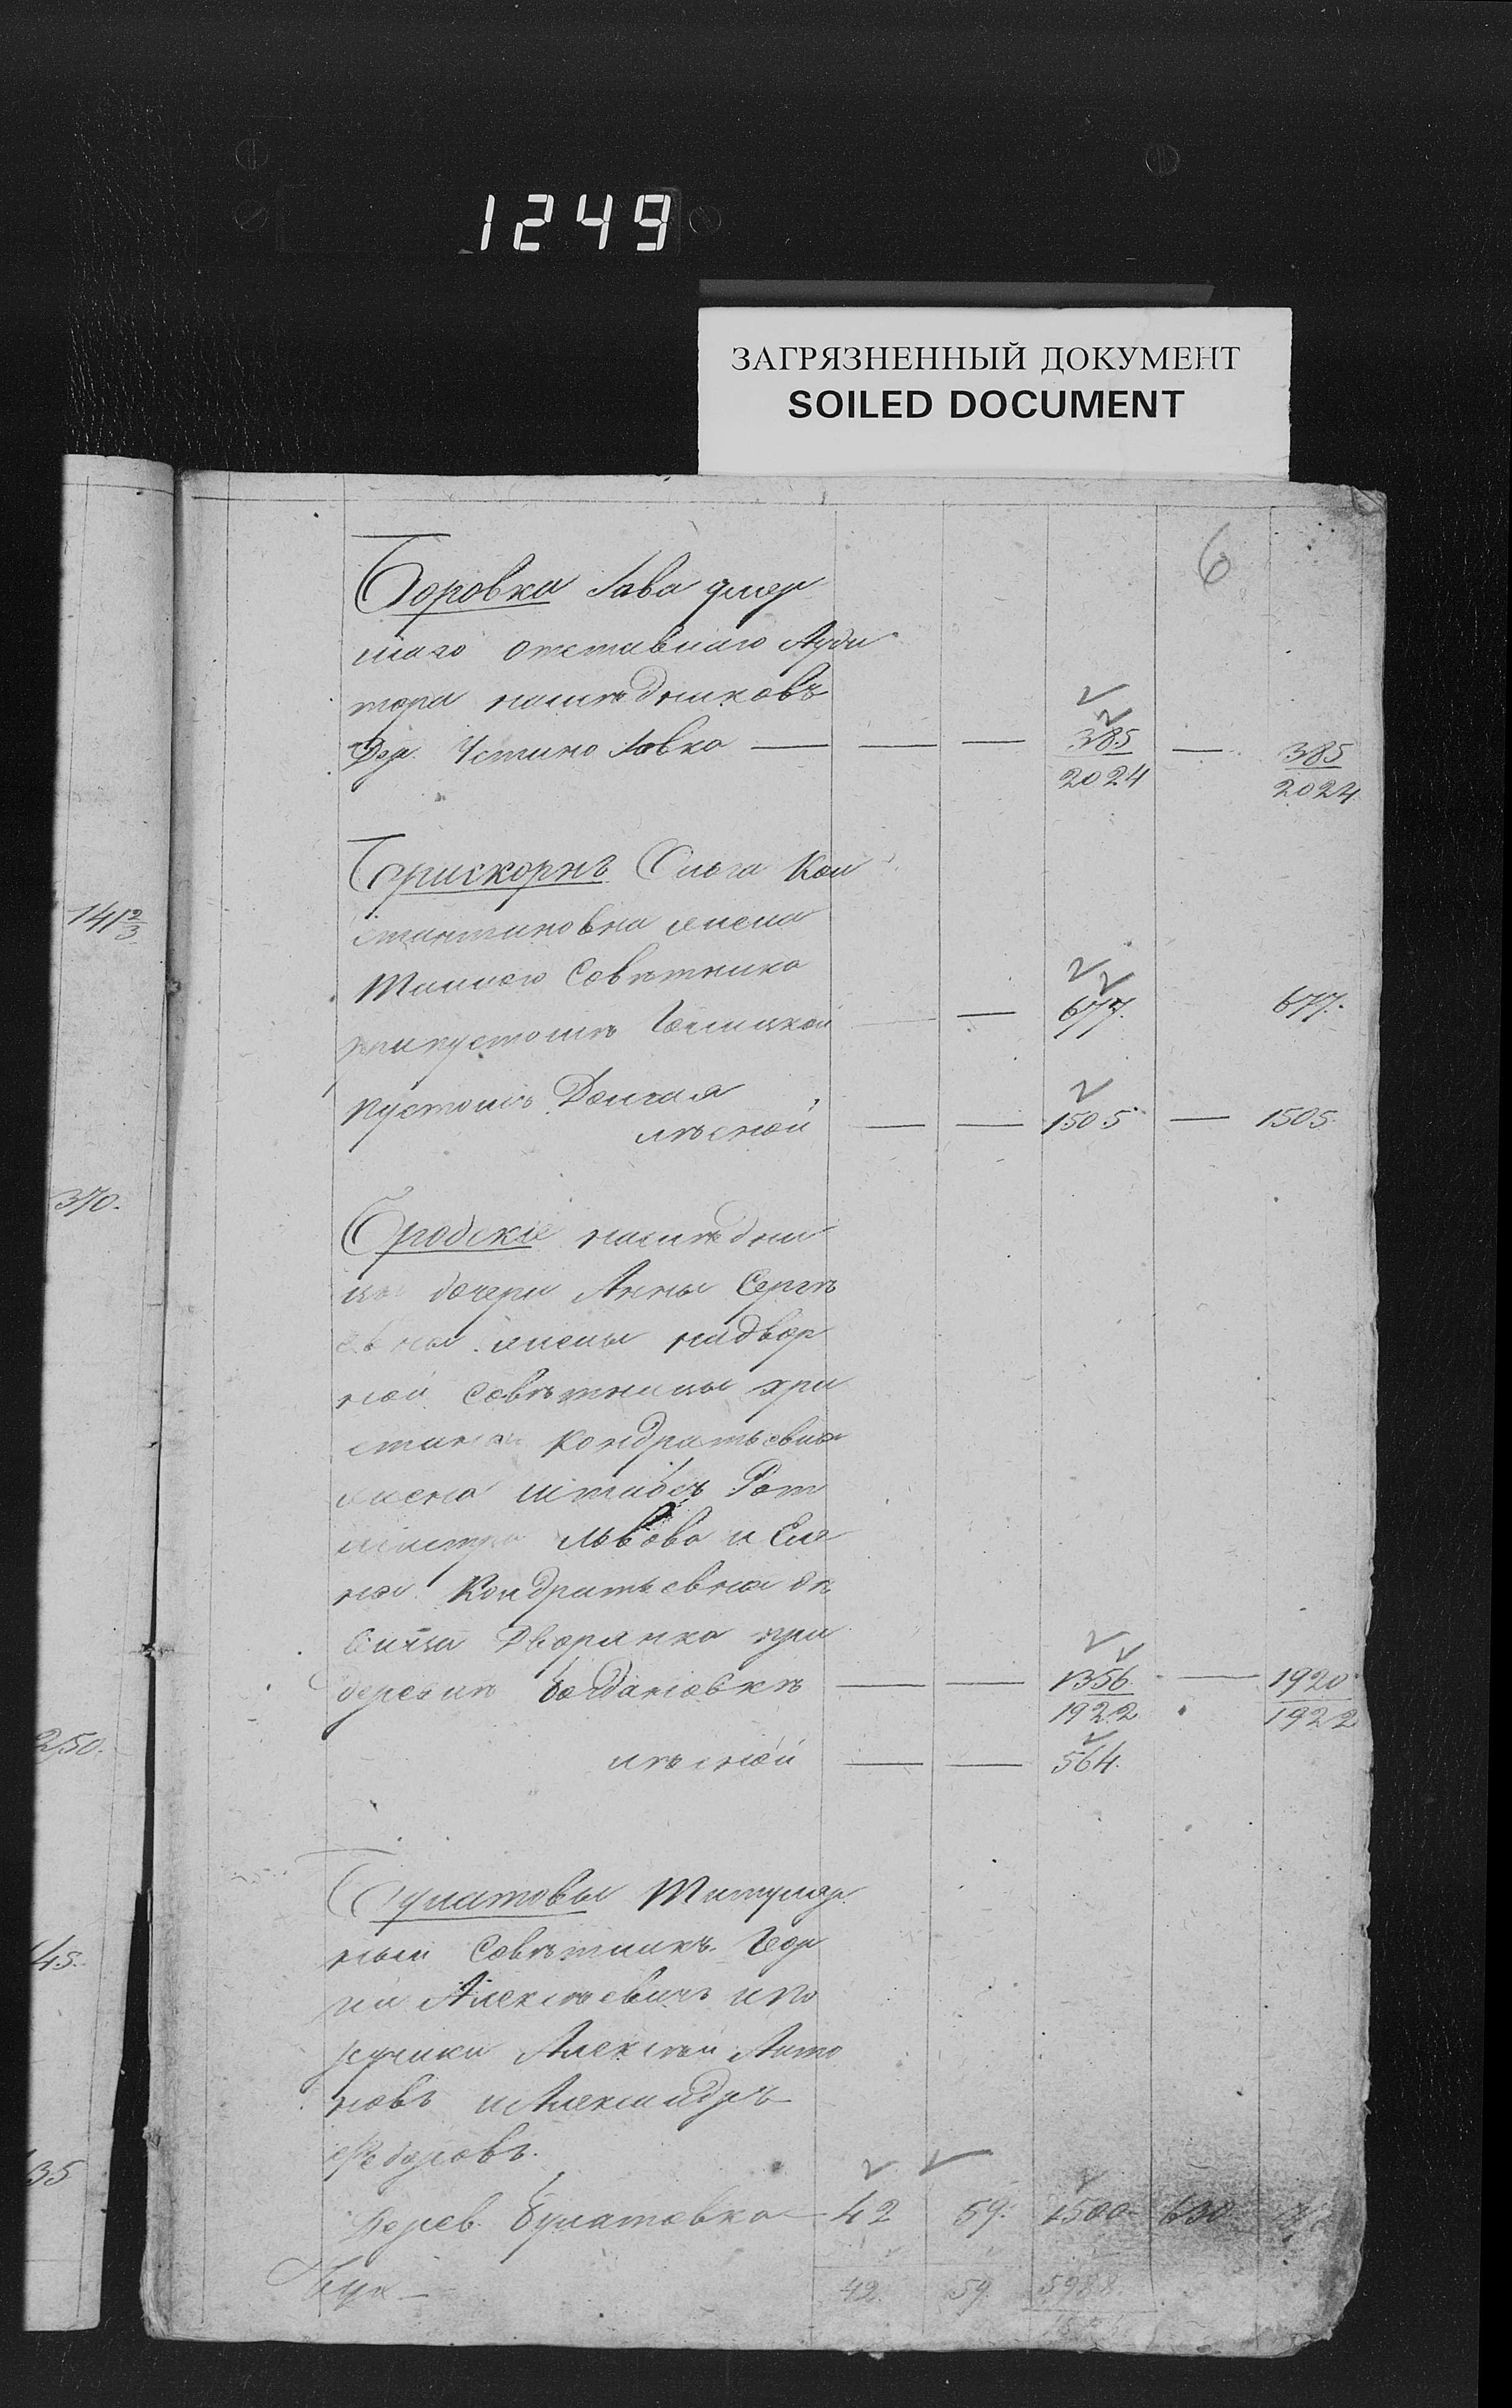 1249
ЗАГРЯЗНЕННЫЙ ДОКУМЕНТ
SOILED DOCUMENT
6
Боровка Савы умер
шаго отставнаго Ауди
тора наследниковъ
Дер. Устино — — — 385 — 385
2024 2024
Брискорнъ Ольга Кон
стантиновна жена
Тайнаго Совѣтника
при пустошѣ — 677. 677.
пустошь Долгая
лѣсной — — 1505 — 1505.
Бродскіе наслѣдни
цы дочери Анны Сергѣ
евны жены надвор
ной Совѣтницы Хри
стина Кондратьевна
жена Штабсъ Рот
мистра Львова и Еле
на Кондратьевна дѣ
вица Дворянка при
деревнѣ Богдановкѣ — — 1356. — 1920
1922 1922
лѣсной — — 564.
Булатовы Титуляр
ный Совѣтникъ Геор
гій Алексѣевичъ и по
ручики Алексѣй Анто
новъ и Александръ
Федоровъ.
Дерев. Булатовка 42 59. 1500 630
42. 59. 5988.
141 2/3
370.
250.
45.
35